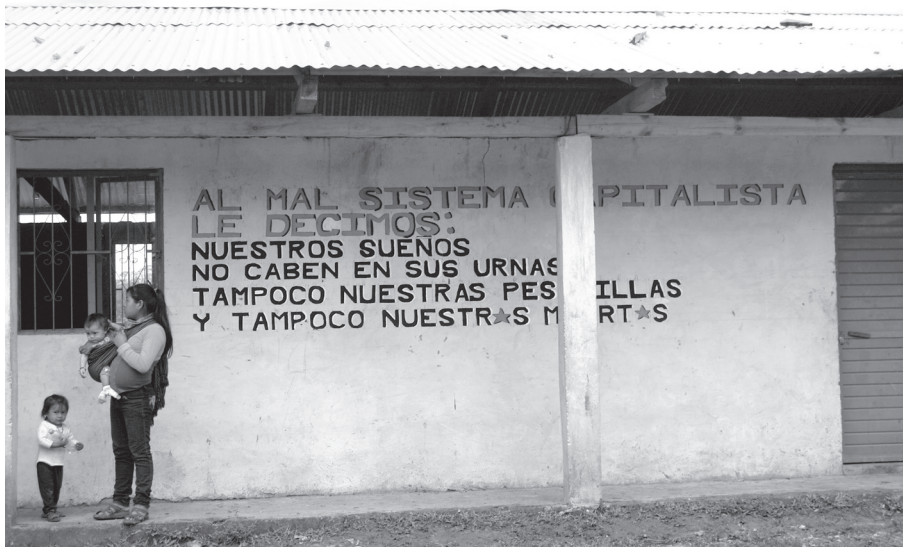 AL MAL SISTEMA CAPITALISTA
LE DECIMOS:
NUESTROS SUEÑOS
NO CABEN EN SUS URNAS
TAMPOCO NUESTRAS PESADILLAS
Y TAMPOCO NUESTR★S MUERT★S